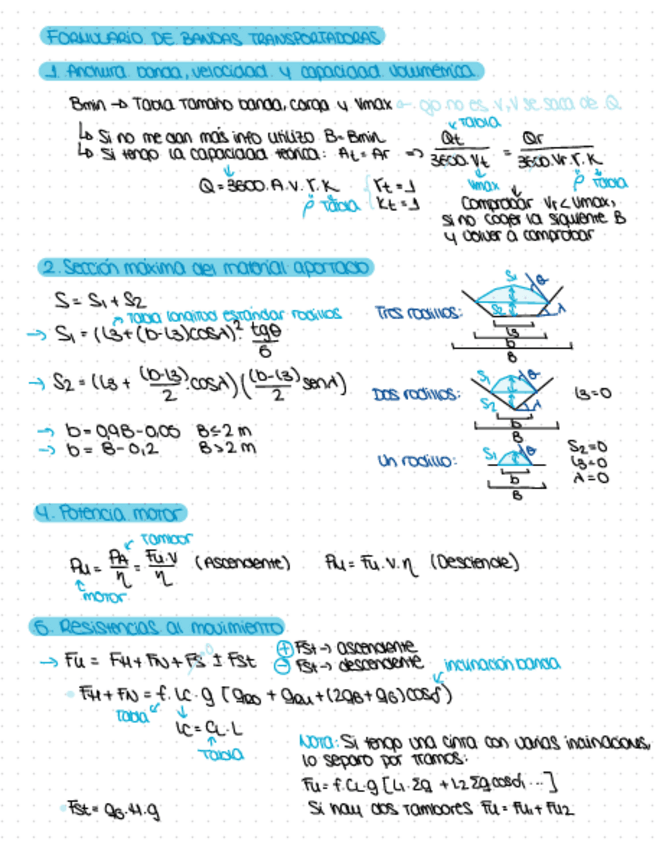 FORMULARIO DE BANDAS TRANSPORTADORAS
1. Anchura banda, velocidad y capacidad volumétrica
Bmin → Tabla tamaño banda, carga y Vmax ← ojo no es V, V se saca de Q
↳ Si no me dan más info utilizo B=Bmin
↳ Si tengo la capacidad teórica: At = Ar ⇒ Qt / 3600.Vt = Qr / 3600.Vr.r.K
Tabla
Vmax
ρ Tabla
Q = 3600.A.V.r.K
ρ Tabla
rt = 1
Kt = 1
Comprobar Vr < Vmax,
si no coger la siguiente B
y volver a comprobar
2. Sección máxima del material aportado
S = S1 + S2
Tabla longitud estándar rodillos
→ S1 = (l3+(b-l3)cosλ)² tgθ / 6
→ S2 = (l3 + (b-l3)/2 .cosλ) ((b-l3)/2 senλ)
→ b = 0,9B-0,05 B≤2 m
→ b = B-0,2 B>2 m
Tres rodillos:
S1 θ
S2 λ
l3
b
B
Dos rodillos:
S1 θ
S2 λ
b
B
l3=0
Un rodillo:
S1 θ
b
B
S2=0
l3=0
λ=0
4. Potencia motor
Tambor
PM = PA / η = FU.V / η (Ascendente) PM = FU.V.η (Desciende)
motor
5. Resistencias al movimiento
→ FU = FH + FN + FS ± FSt
⊕ FSt → ascendente
⊖ FSt → descendente
inclinación banda
FH + FN = f. lc. g [qRO + qRU + (2qB + qG) cosδ)
Tabla
lc = CL. L
Tabla
Nota: Si tengo una cinta con varias inclinaciones,
lo separo por tramos:
FU = f.CL.g [L1.Σq + L2 Σq cosδ1 ...]
FSt = qG.H.g
Si hay dos tambores FU = FU1 + FU2